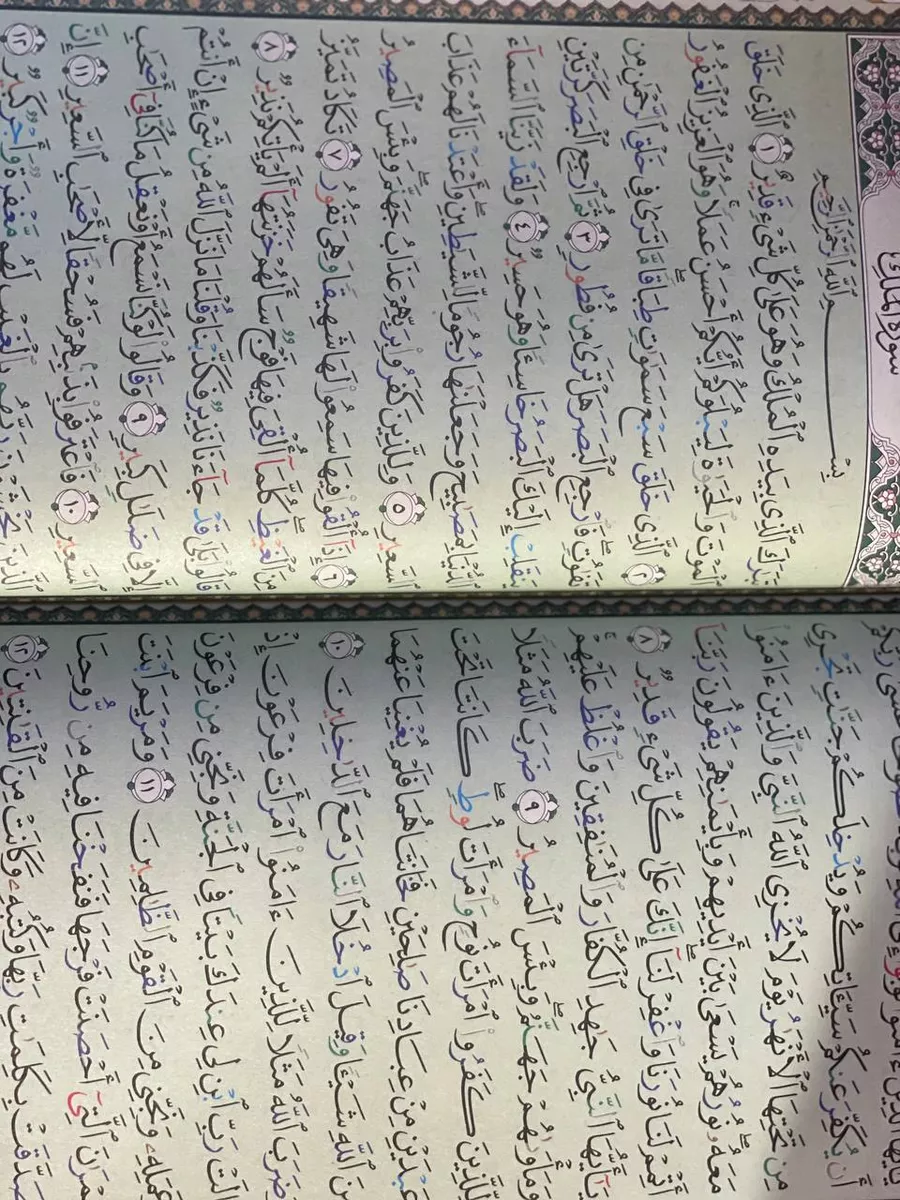 يَٰٓأَيُّهَا ٱلَّذِينَ ءَامَنُوا۟ تُوبُوٓا۟ إِلَى ٱللَّهِ تَوْبَةً نَّصُوحًا عَسَىٰ رَبُّكُمْ
أَن يُكَفِّرَ عَنكُمْ سَيِّـَٔاتِكُمْ وَيُدْخِلَكُمْ جَنَّٰتٍ تَجْرِى
مِن تَحْتِهَا ٱلْأَنْهَٰرُ يَوْمَ لَا يُخْزِى ٱللَّهُ ٱلنَّبِىَّ وَٱلَّذِينَ ءَامَنُوا۟
مَعَهُۥ نُورُهُمْ يَسْعَىٰ بَيْنَ أَيْدِيهِمْ وَبِأَيْمَٰنِهِمْ يَقُولُونَ رَبَّنَآ
أَتْمِمْ لَنَا نُورَنَا وَٱغْفِرْ لَنَآ إِنَّكَ عَلَىٰ كُلِّ شَىْءٍ قَدِيرٌ ٨
يَٰٓأَيُّهَا ٱلنَّبِىُّ جَٰهِدِ ٱلْكُفَّارَ وَٱلْمُنَٰفِقِينَ وَٱغْلُظْ عَلَيْهِمْ
وَمَأْوَىٰهُمْ جَهَنَّمُ وَبِئْسَ ٱلْمَصِيرُ ٩ ضَرَبَ ٱللَّهُ مَثَلًا
لِّلَّذِينَ كَفَرُوا۟ ٱمْرَأَتَ نُوحٍ وَٱمْرَأَتَ لُوطٍ كَانَتَا تَحْتَ
عَبْدَيْنِ مِنْ عِبَادِنَا صَٰلِحَيْنِ فَخَانَتَاهُمَا فَلَمْ يُغْنِيَا عَنْهُمَا
مِنَ ٱللَّهِ شَيْـًٔا وَقِيلَ ٱدْخُلَا ٱلنَّارَ مَعَ ٱلدَّٰخِلِينَ ١٠
وَضَرَبَ ٱللَّهُ مَثَلًا لِّلَّذِينَ ءَامَنُوا۟ ٱمْرَأَتَ فِرْعَوْنَ إِذْ
قَالَتْ رَبِّ ٱبْنِ لِى عِندَكَ بَيْتًا فِى ٱلْجَنَّةِ وَنَجِّنِى مِن فِرْعَوْنَ
وَعَمَلِهِۦ وَنَجِّنِى مِنَ ٱلْقَوْمِ ٱلظَّٰلِمِينَ ١١ وَمَرْيَمَ ٱبْنَتَ
عِمْرَٰنَ ٱلَّتِىٓ أَحْصَنَتْ فَرْجَهَا فَنَفَخْنَا فِيهِ مِن رُّوحِنَا
وَصَدَّقَتْ بِكَلِمَٰتِ رَبِّهَا وَكُتُبِهِۦ وَكَانَتْ مِنَ ٱلْقَٰنِتِينَ ١٢
سُورَةُ المُلْكِ
بِسْمِ ٱللَّهِ ٱلرَّحْمَٰنِ ٱلرَّحِيمِ
تَبَٰرَكَ ٱلَّذِى بِيَدِهِ ٱلْمُلْكُ وَهُوَ عَلَىٰ كُلِّ شَىْءٍ قَدِيرٌ ١ ٱلَّذِى خَلَقَ
ٱلْمَوْتَ وَٱلْحَيَوٰةَ لِيَبْلُوَكُمْ أَيُّكُمْ أَحْسَنُ عَمَلًا وَهُوَ ٱلْعَزِيزُ ٱلْغَفُورُ
٢ ٱلَّذِى خَلَقَ سَبْعَ سَمَٰوَٰتٍ طِبَاقًا مَّا تَرَىٰ فِى خَلْقِ ٱلرَّحْمَٰنِ مِن
تَفَٰوُتٍ فَٱرْجِعِ ٱلْبَصَرَ هَلْ تَرَىٰ مِن فُطُورٍ ٣ ثُمَّ ٱرْجِعِ ٱلْبَصَرَ كَرَّتَيْنِ
يَنقَلِبْ إِلَيْكَ ٱلْبَصَرُ خَاسِئًا وَهُوَ حَسِيرٌ ٤ وَلَقَدْ زَيَّنَّا ٱلسَّمَآءَ
ٱلدُّنْيَا بِمَصَٰبِيحَ وَجَعَلْنَٰهَا رُجُومًا لِّلشَّيَٰطِينِ وَأَعْتَدْنَا لَهُمْ عَذَابَ
ٱلسَّعِيرِ ٥ وَلِلَّذِينَ كَفَرُوا۟ بِرَبِّهِمْ عَذَابُ جَهَنَّمَ وَبِئْسَ ٱلْمَصِيرُ
٦ إِذَآ أُلْقُوا۟ فِيهَا سَمِعُوا۟ لَهَا شَهِيقًا وَهِىَ تَفُورُ ٧ تَكَادُ تَمَيَّزُ
مِنَ ٱلْغَيْظِ كُلَّمَآ أُلْقِىَ فِيهَا فَوْجٌ سَأَلَهُمْ خَزَنَتُهَآ أَلَمْ يَأْتِكُمْ نَذِيرٌ ٨
قَالُوا۟ بَلَىٰ قَدْ جَآءَنَا نَذِيرٌ فَكَذَّبْنَا وَقُلْنَا مَا نَزَّلَ ٱللَّهُ مِن شَىْءٍ إِنْ أَنتُمْ
إِلَّا فِى ضَلَٰلٍ كَبِيرٍ ٩ وَقَالُوا۟ لَوْ كُنَّا نَسْمَعُ أَوْ نَعْقِلُ مَا كُنَّا فِىٓ أَصْحَٰبِ
ٱلسَّعِيرِ ١٠ فَٱعْتَرَفُوا۟ بِذَنۢبِهِمْ فَسُحْقًا لِّأَصْحَٰبِ ٱلسَّعِيرِ ١١ إِنَّ
ٱلَّذِينَ يَخْشَوْنَ رَبَّهُم بِٱلْغَيْبِ لَهُم مَّغْفِرَةٌ وَأَجْرٌ كَبِيرٌ ١٢